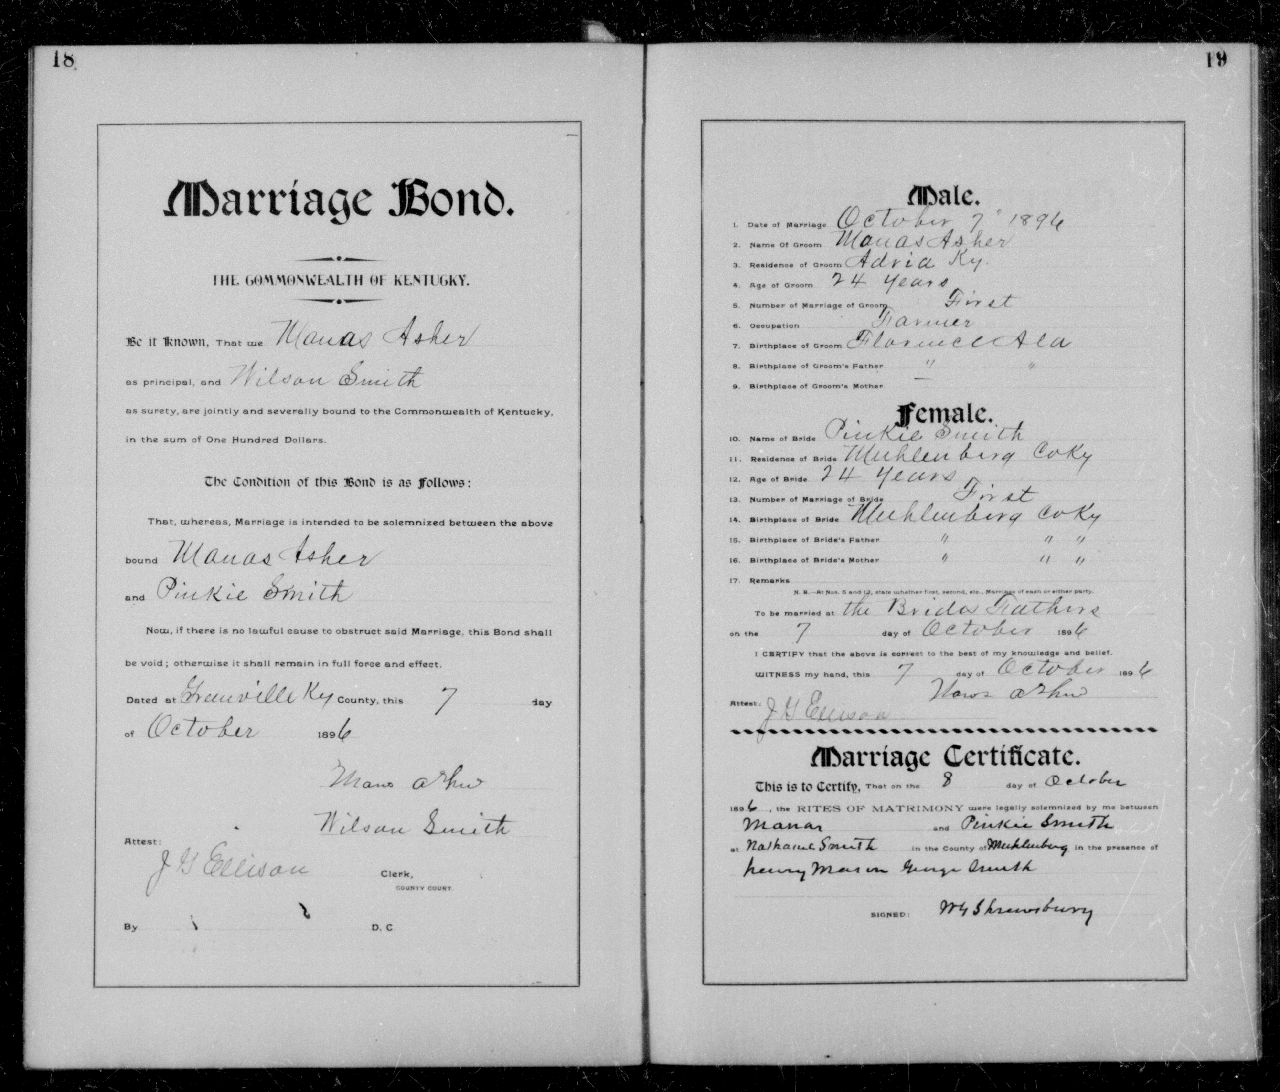 18
Marriage Bond.
THE COMMONWEALTH OF KENTUCKY.
Be it Known, That we Manas Asher
as principal, and Wilson Smith
as surety, are jointly and severally bound to the Commonwealth of Kentucky,
in the sum of One Hundred Dollars.
The Condition of this Bond is as Follows:
That, whereas, Marriage is intended to be solemnized between the above
bound Manas Asher
and Pinkie Smith
Now, if there is no lawful cause to obstruct said Marriage, this Bond shall
be void; otherwise it shall remain in full force and effect.
Dated at Greenville Ky County, this 7 day
of October 1896
Wilson Smith
Attest:
J G Ellison Clerk,
COUNTY COURT.
By D. C
19
Male.
1. Date of Marriage October 7" 1896
2. Name Of Groom Manas Asher
3. Residence of Groom Adria Ky.
4. Age of Groom 24 Years
5. Number of Marriage of Groom First
6. Occupation Farmer
7. Birthplace of Groom Florence Ala
8. Birthplace of Groom's Father " "
9. Birthplace of Groom's Mother —
Female.
10. Name of Bride Pinkie Smith
11. Residence of Bride Muhlenberg Co Ky
12. Age of Bride 24 Years
13. Number of Marriage of Bride First
14. Birthplace of Bride Muhlenberg Co Ky
15. Birthplace of Bride's Father " " "
16. Birthplace of Bride's Mother " " "
17. Remarks
N. B.—At Nos. 5 and 13, state whether first, second, etc., Marriage of each or either party.
To be married at the Brides Fathers
on the 7 day of October 1896
I CERTIFY that the above is correct to the best of my knowledge and belief.
WITNESS my hand, this 7 day of October 1896
Attest: J G Ellison
Marriage Certificate.
This is to Certify, That on the 8 day of October
1896, the RITES OF MATRIMONY were legally solemnized by me between
Manas and Pinkie Smith
at Nathaniel Smith in the County of Muhlenberg in the presence of
henry Mason George Smith
SIGNED: W G Shrewsbury